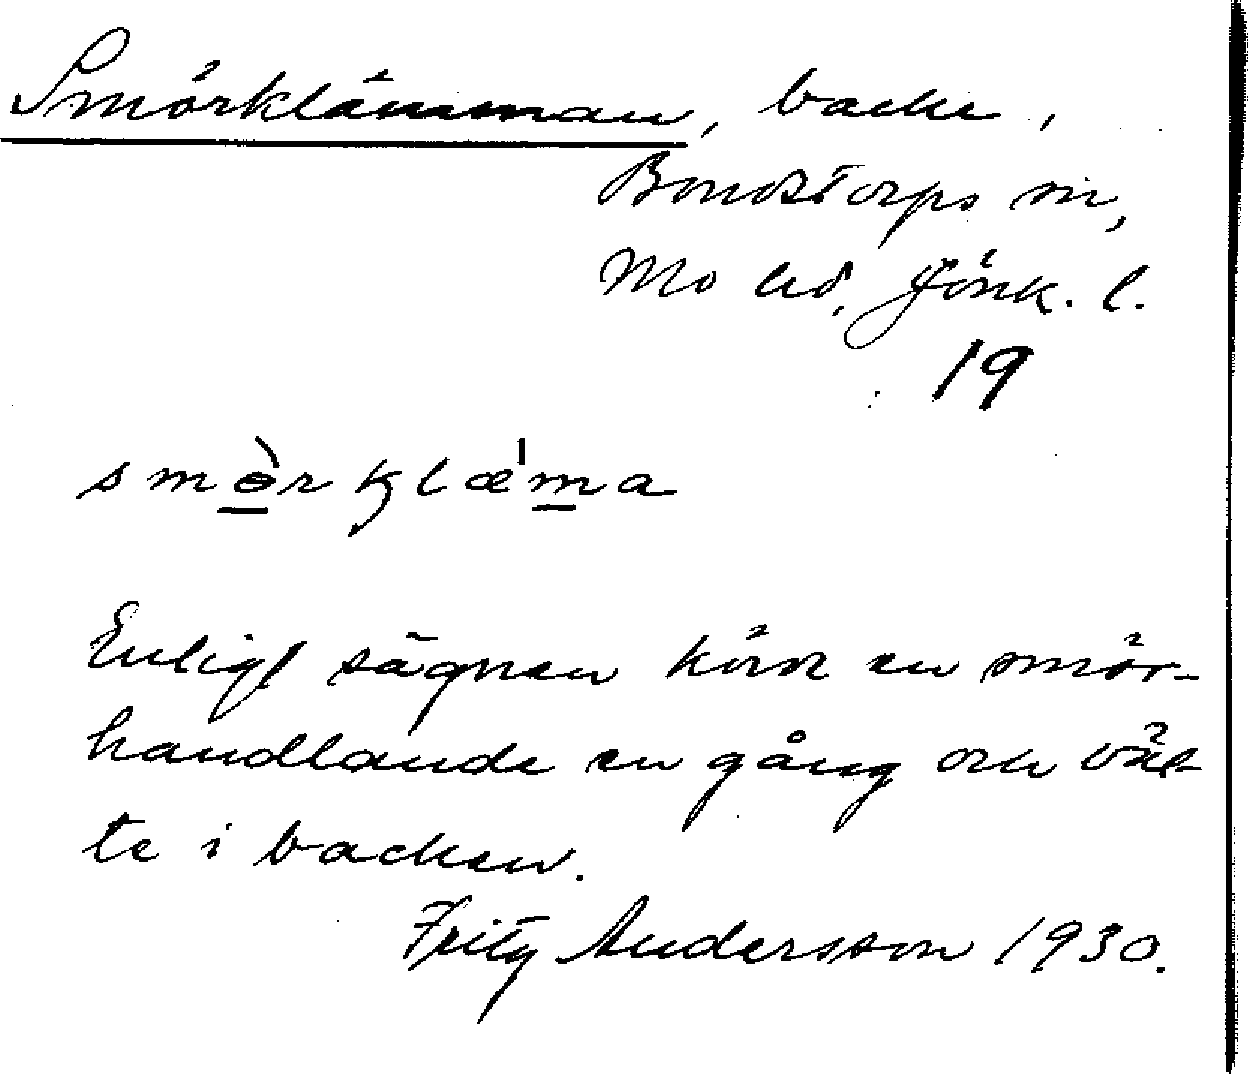 Smörklämman, backe,
Bondstorps sn,
Mo hd, Jönk. l.
19
smɵ̀rklæ̍ma
Enligt sägnen körde en smör-
handlande en gång och väl-
te i backen.
Fritz Andersson 1930.